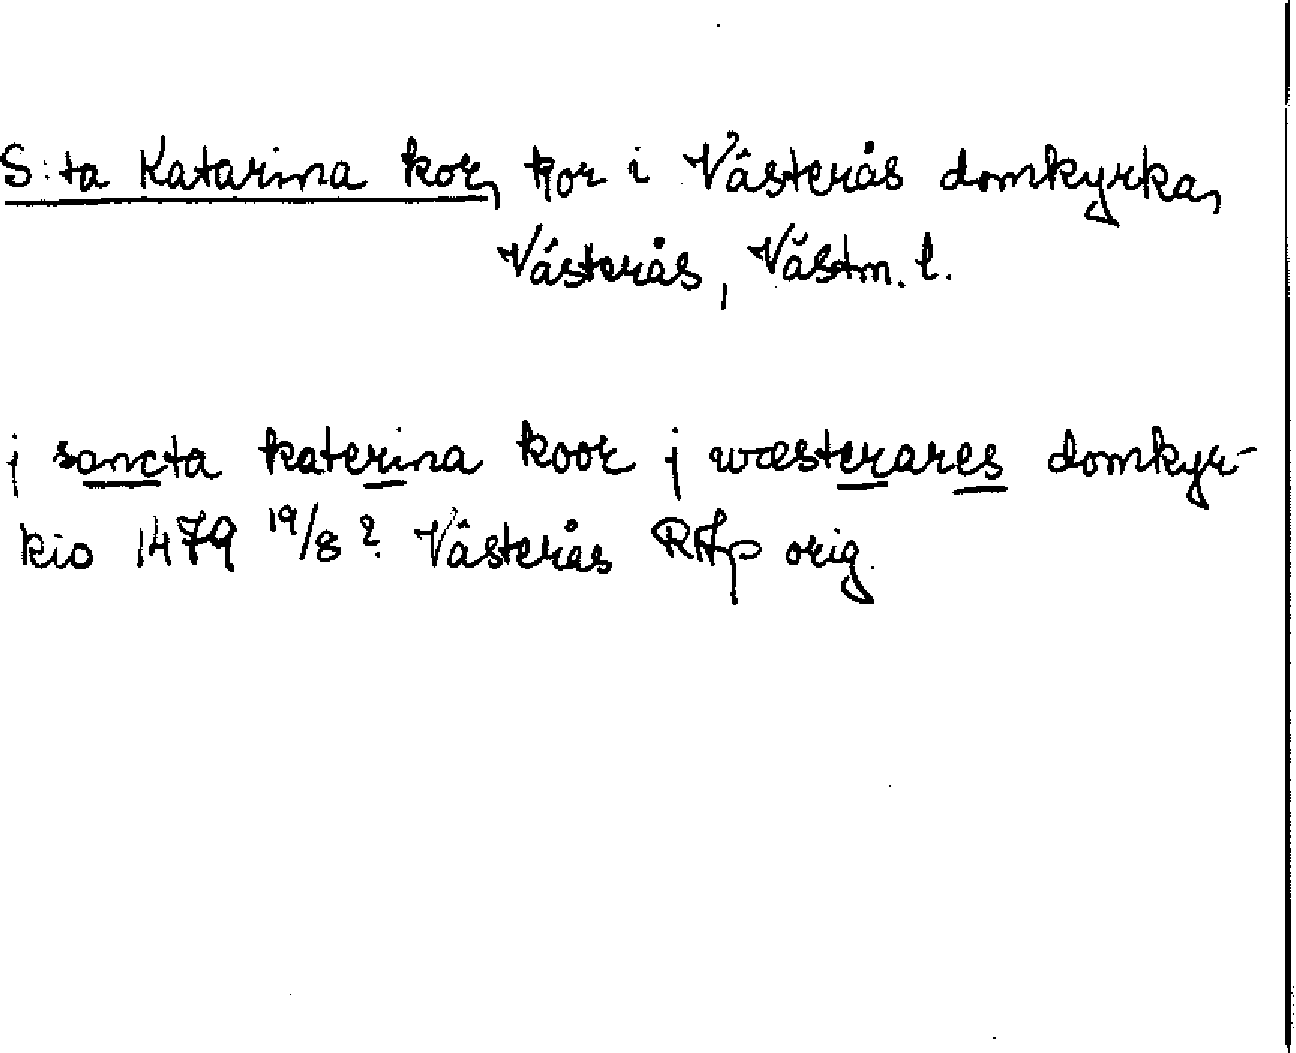 S:ta Katarina kor, kor i Västerås domkyrka,
Västerås, Västm. l.
j sancta katerina koor j wæsterares domkyr-
kio 1479 19/8? Västerås RAp orig.